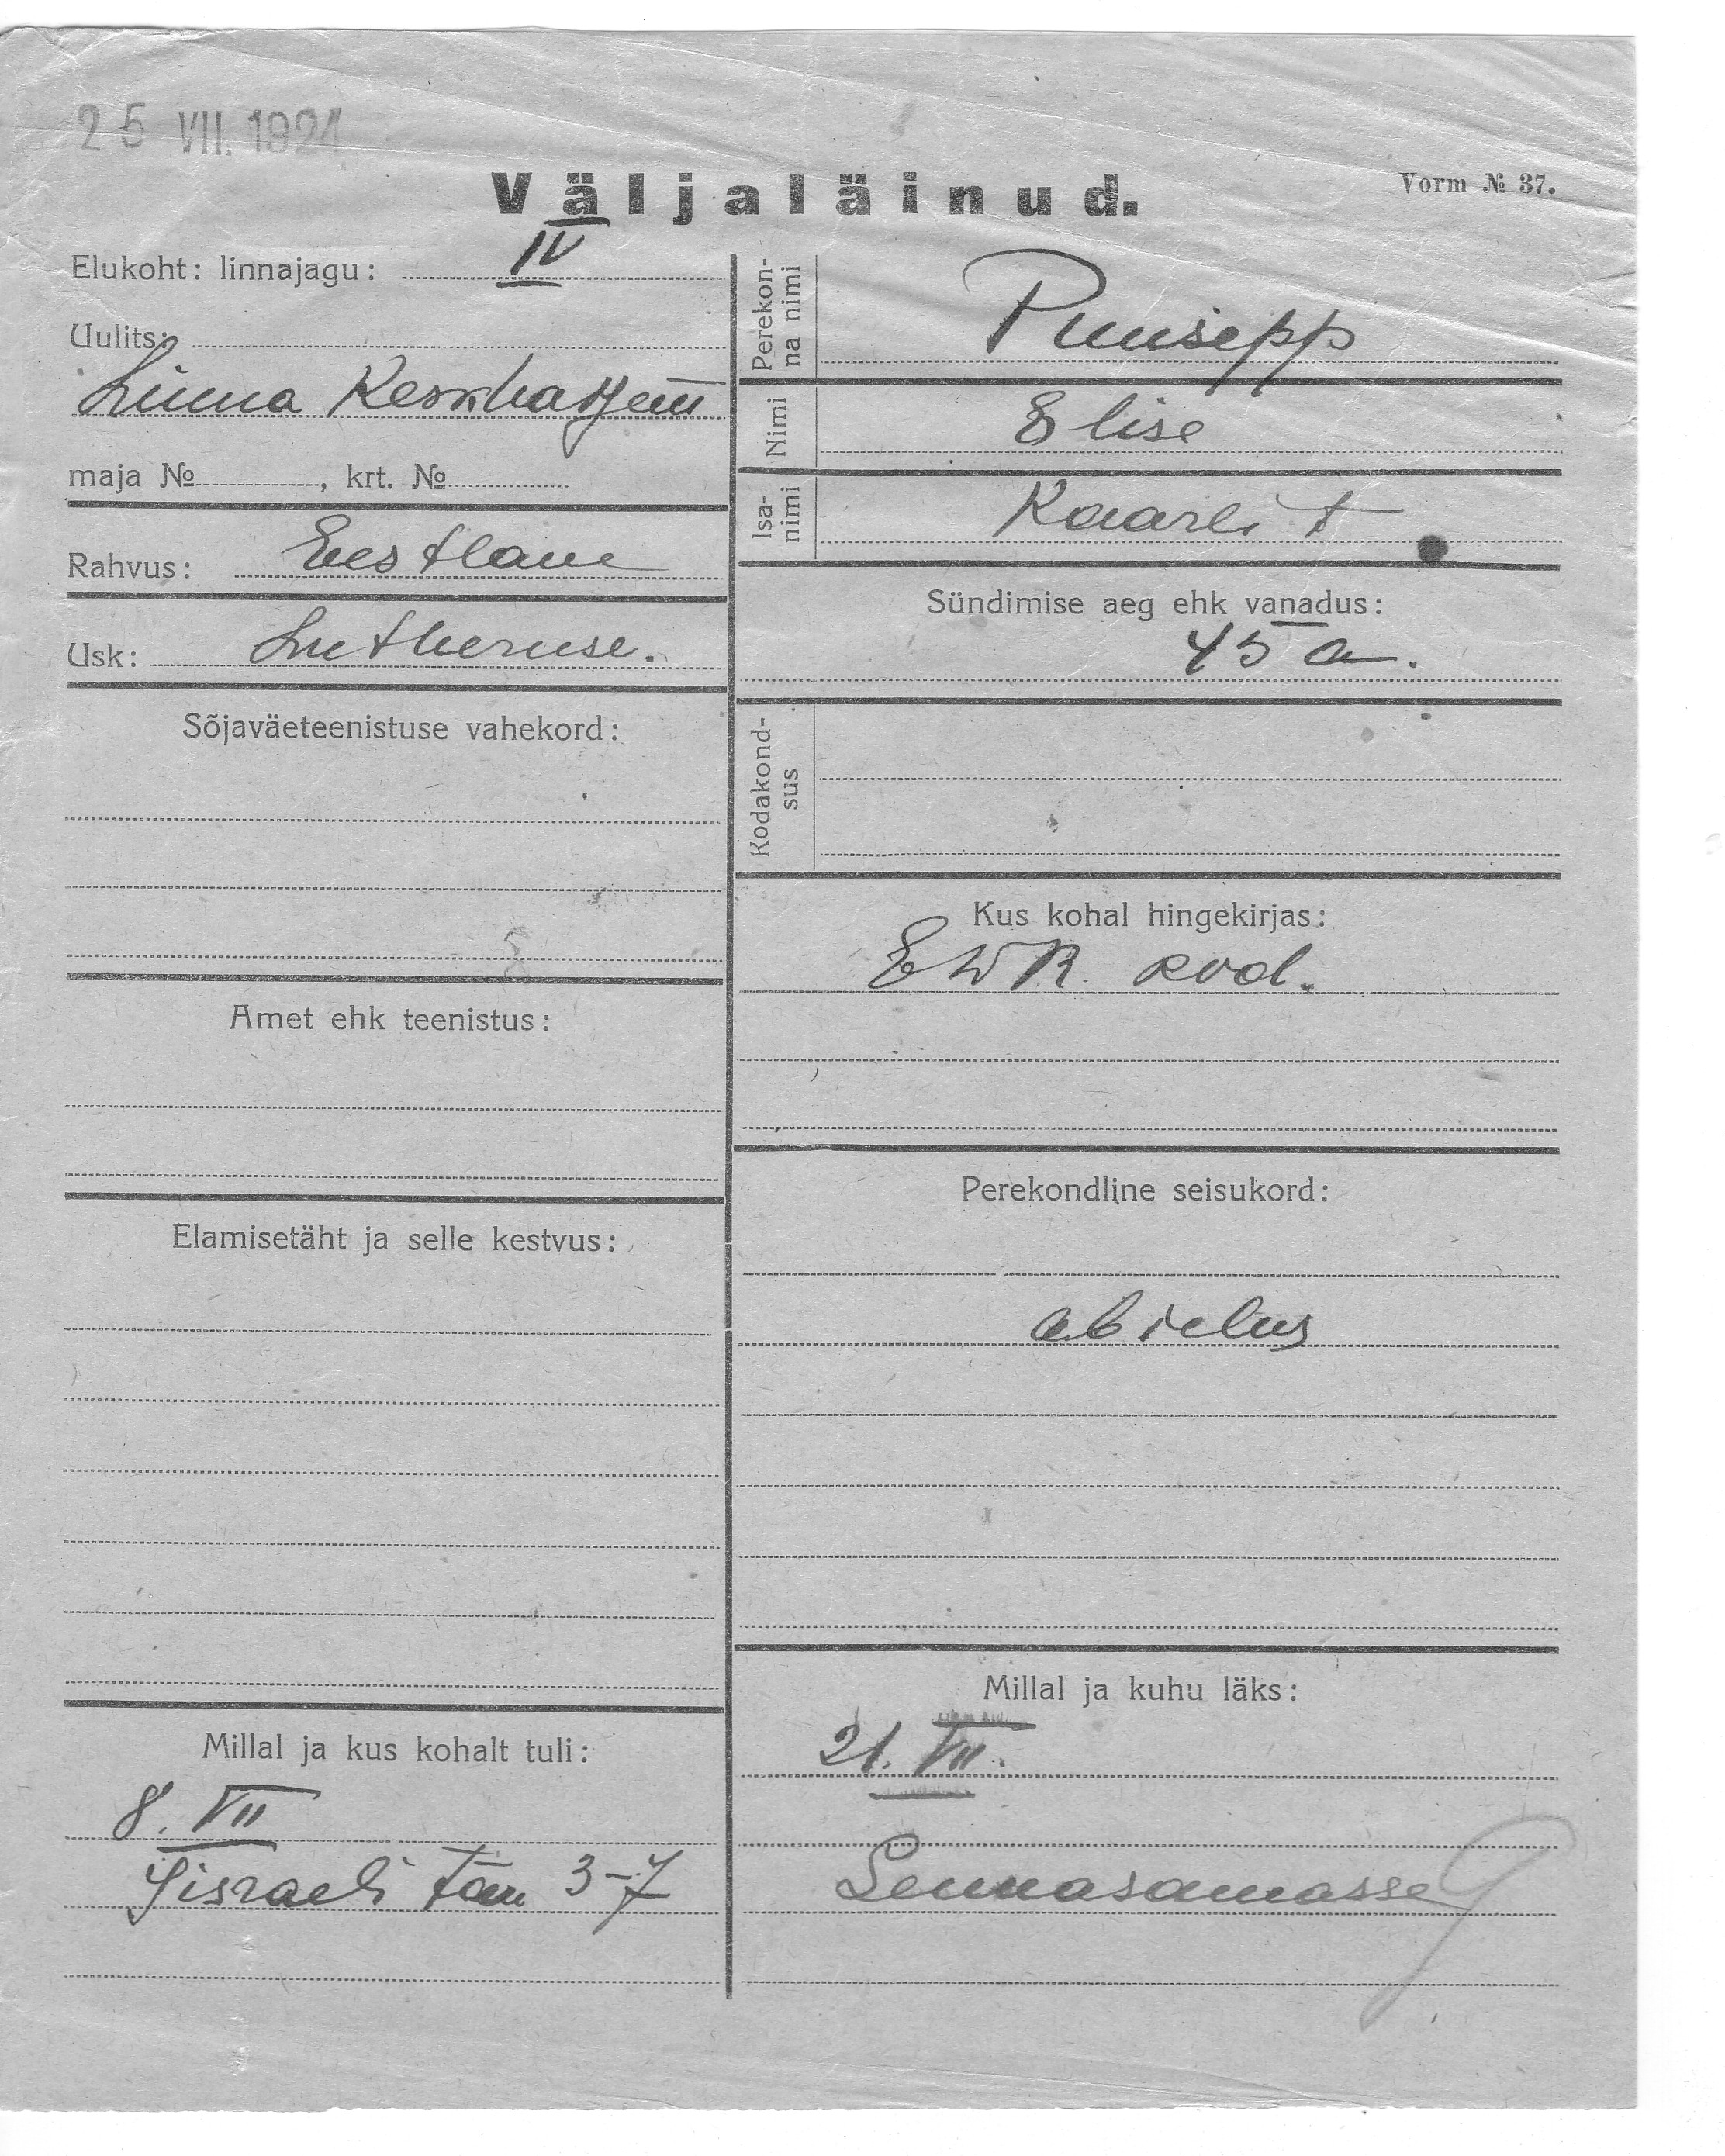 25 VII. 1924
Väljaläinud.
Vorm № 37.
Elukoht: linnajagu: IV
Uulits:
Linna Keskhaigem
maja № , krt. №
Rahvus: Eestlane
Usk: Lutheruse.
Sõjaväeteenistuse vahekord:
Amet ehk teenistus:
Elamisetäht ja selle kestvus:
Millal ja kus kohalt tuli:
8. VII
Iisraeli tän 3-7
Perekon-
na nimi
Puusepp
Nimi
Elise
Isa-
nimi
Kaarli t
Sündimise aeg ehk vanadus:
45 a.
Kodakond-
sus
Kus kohal hingekirjas:
EWR. kod.
Perekondline seisukord:
abielus
Millal ja kuhu läks:
21. VII.
Sennasamasse